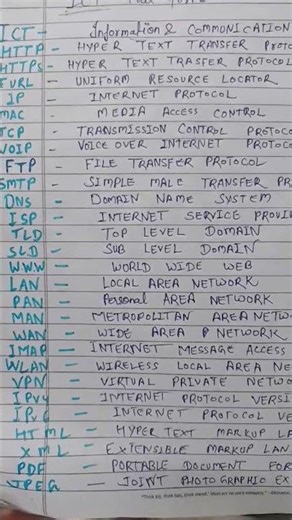 ICT- Information & COMMUNICATION
HTTP - HYPER TEXT TRANSFER PROTO
HTTPs- HYPER TEXT TRASFER PROTOCOL
FURL - UNIFORM RESOURCE LOCATOR
IP - INTERNET PROTOCOL
MAC - MEDIA ACCESS CONTROL
TCP - TRANSMISSION CONTROL PROTOCO
VOIP - VOICE OVER INTERNET PROTOCO
FTP - FILE TRANSFER PROTOCOL
SMTP - SIMPLE MALE TRANSFER PR
DNS - DOMAIN NAME SYSTEM
ISP - INTERNET SERVICE PROVI
TLD - TOP LEVEL DOMAIN
SLD - SUB LEVEL DOMAIN
W.W.W - WORLD WIDE WEB
LAN - LOCAL AREA NETWORK
PAN - Personal AREA NETWORK
MAN - METROPOLITAN AREA NETWO
WAN - WIDE AREA P NETWORK
IMAP - INTERNET MESSAGE ACCESS
WLAN - WIRELESS LOCAL AREA NE
VPN - VIRTUAL PRIVATE NETWO
IPv4 - INTERNET PROTOCOL VERSI
INTERNET PROTOCOL VE
HTML - HYPER TEXT MARKUP LA
XML - EXTENSIBLE MARKUP LAN
PDF - PORTABLE DOCUMENT FOR
JPEG - JOINT PHOTOGRAPHIC EX